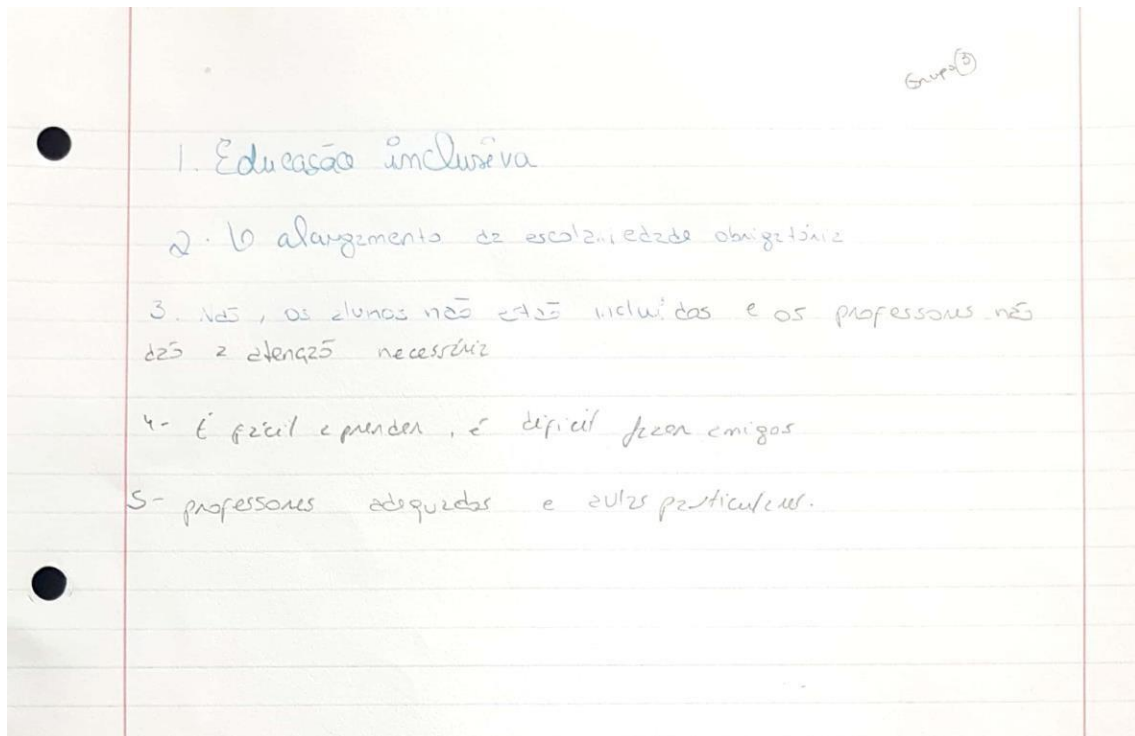 Grupo 3
1. Educação inclusiva
2. O alargamento da escolariedade obrigatória
3. Não, os alunos não estão incluidos e os professores não
dão a atenção necessária
4- É fácil aprender, é dificil fazer amigos
5- professores adequados e aulas particulares.